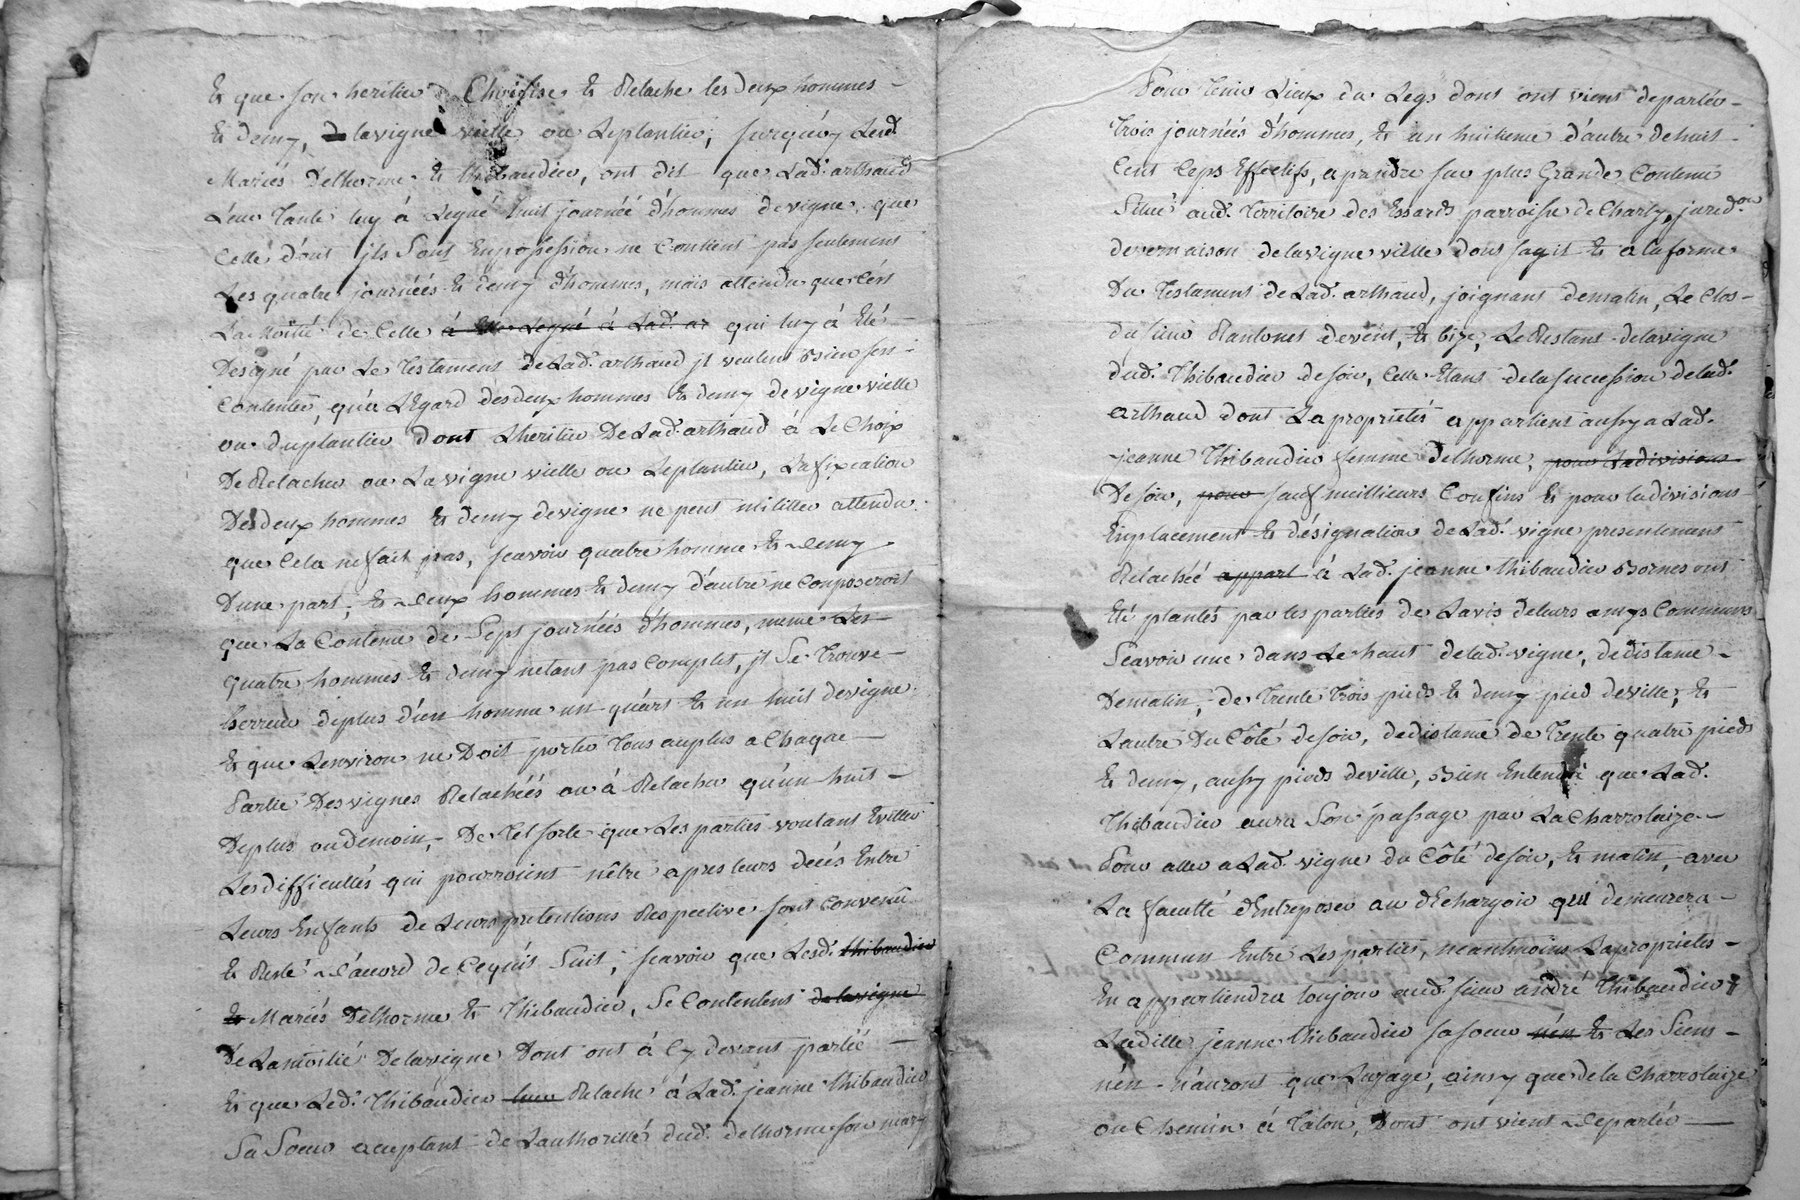 Et que son heritier Choisise Et Relache les deux hommes –
Et demy, de lavigne vielle ou Leplantier; surquoy Lesd.
Mariés Delhorme Et thibaudier, ont dit que Lad. arthaud
Leur Tante luy à Legué huit journéé d'hommes devigne, que
Celle d'ont jls Sont Enpossession ne Contient pas seulement
Les quatre journéés Et demy d'hommes, mais attendu que C'ést
La moitié de Celle à Elle Legué à Lad. ar qui luy à Eté
Designé par Le Testament de Lad. arthaud jl veulent Bien sen
Contenter, qu'a LEgard des deux hommes Et demy de vigne vielle
ou duplantier dont Lheritier De Lad. arthaud à Le Choix
De Relacher ou La vigne vielle ou Leplantier, La fixcation
Des deux hommes Et demy devigne ne peut militter attendu
que Cela nefait pas, scavoir quatre homme Et Demy
Dune part, Et Deux hommes Et demy d'autre ne Composeroit
que La Contenue de Sept journéés d'hommes, meme Les
quatre hommes Et demy netant pas Complet, jl Se Trouve –
herreur deplus d'un homme un quart Et un huit devigne
Et que Lenviron ne Doit porter Tous auplus a Chaque –
Partie Des vignes Relachéés ou à Relacher qu'un huit –
Deplus ou demoin, – De Tel sorte que Les parties voulant Eviter
Les difficultés qui pourroient nêtre apres leurs decés Entre
Leurs Enfants de Leurs pretentions Respective sont Convenû
Et Resté D'acord de Cequis Suit; scavoir que Lesd. thibaudier
Et Mariés Delhorme Et Thibaudier, Se Contentent de lavigne
De Lamoitié De lavigne Dont ont á Cy devant parléé –
Et que Led. Thibaudier leur Relache à Lad. jeanne thibaudier
Sa Soeur acceptant de Lauthorité dud. delhorme son mary
Pour Tenir Lieux du Legs dont ont vient deparler –
Trois journéés d'hommes, Et un huitieme d'autre de huit
Cent Ceps Effectifs, a prandre sur plus Grande Contenue
Situé aud. Territoire des Essards parroisse de Charly, jured.on
devernaison delavigne vielle dont sagit Et a la forme
Du Testament de Lad. arthaud, joignant dematin, Le Clos –
du sieur Rantonet devent, Et bize, Le Restant de la vigne
dud. Thibaudier desoir, Celle Etant de la succession delad.
arthaud dont La proprietés appartient aussy a Lad.
jeanne Thibaudier femme Delhorme, pour La division
De soir, pour sauf meillieurs Confins Et pour la divisions
Emplacement Et désignation de Lad. vigne presentement
Relachéé appart à Lad. jeanne thibaudier Bornes ont
Eté plantés par les parties de Lavis deleurs amys Communs
Scavoir une dans Le haut delad. vigne, de distance –
Dematin, de Trente Trois pieds Et demy pied deville, Et
Lautre Du Côté desoir, dedistance de Trente quatre pieds
Et demy, aussy pieds deville, Bien Entendu que Lad.
Thibaudier aura Son passage par La Charrolaize –
Pour aller a Lad. vigne du Côté desoir, Et matin, avec
La faculté d'Entreposer au dEchargoir qui demeurera –
Commun Entre Les parties, neantmoins La proprietes –
En appartiendra toujour aud. sieur andré Thibaudier
Ladille jeanne thibaudier sa soeur n'én Et Les Siens –
n'én n'auront que Luzage, ainsy que de la Charrolaize
ou Chemin à Talon, Dont ont vient Deparler –